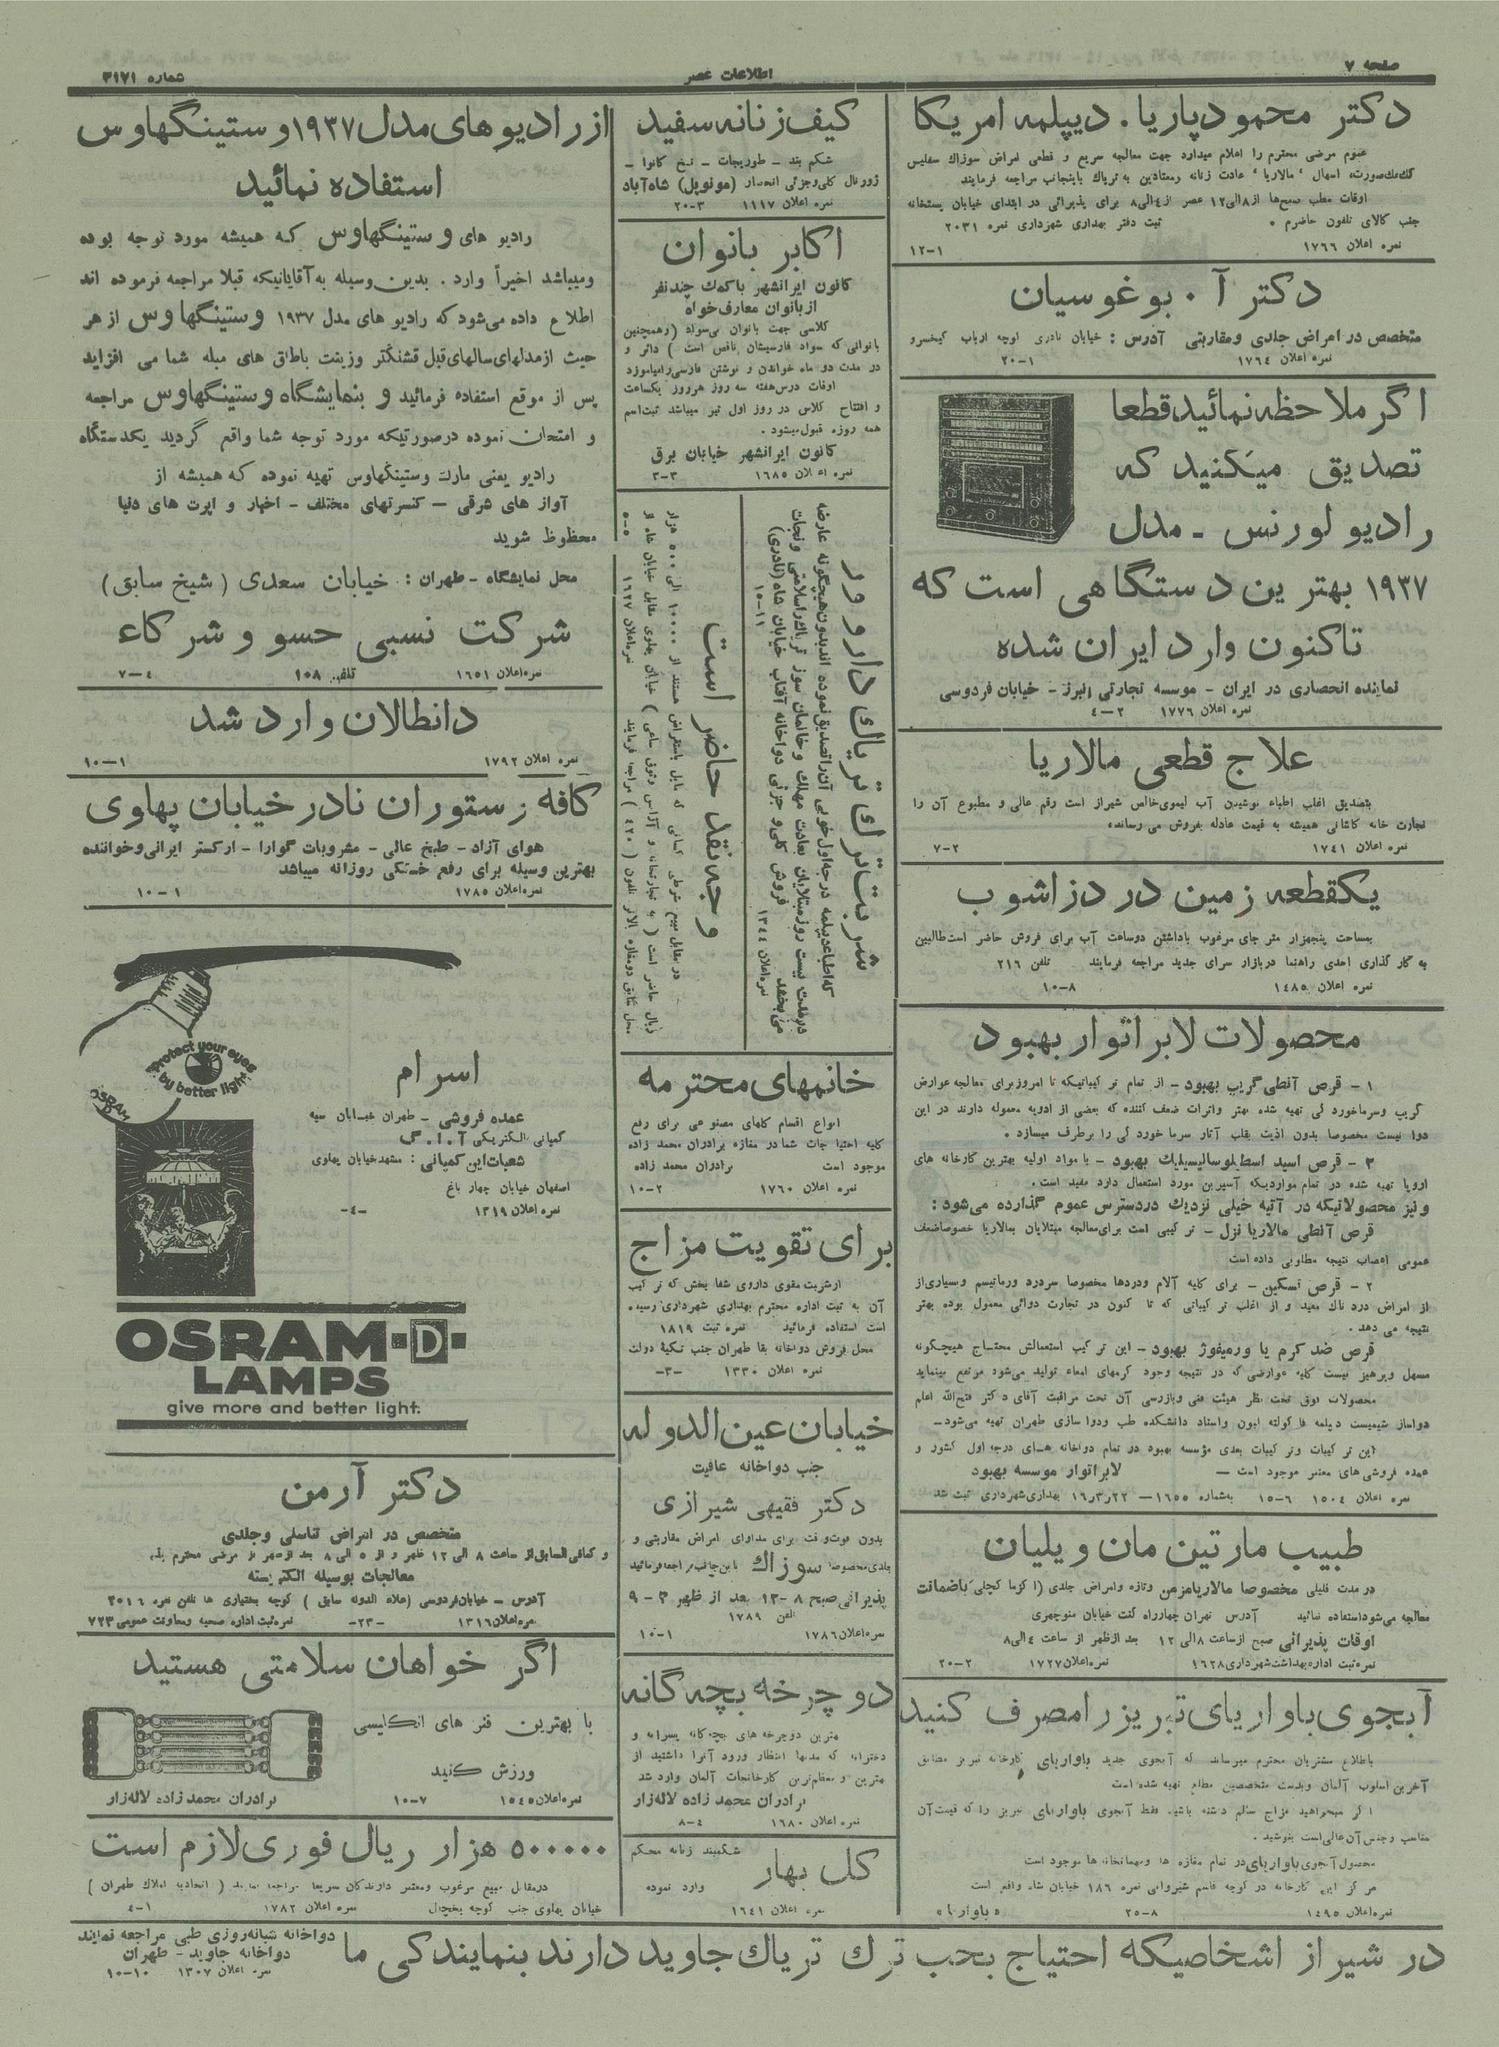 صفحه ۷
اطلاعات عصر
شماره ۳۱۷۱
دکتر محمود پاریا . دیپلمه امریکا
عموم مرضی محترم را اعلام میدارد جهت معالجه سریع و قطعی امراض سوزاك سفلیس
كك‌مك‌صورت، اسهال ‘ مالاریا ‘ عادت زنانه و معتادین به تریاك باینجانب مراجعه فرمایند
اوقات مطب صبح‌ها از ۸ الی ۱۲ عصر از ۴ الی ۸ برای پذیرائی در ابتدای خیابان پستخانه
جنب کالای تلفون حاضرم . ثبت دفتر بهداری شهرداری نمره ۲۰۳۱
نمره اعلان ۱۷۶۶ ۱–۱۲
دکتر آ . بوغوسیان
متخصص در امراض جلدی و مقاربتی آدرس : خیابان نادری کوچه ارباب کیخسرو
نمره اعلان ۱۷۶۴ ۱–۲۰
اگر ملاحظه نمائید قطعا
تصدیق میکنید که
رادیو لورنس - مدل
۱۹۳۷ بهترین دستگاهی است که
تاکنون وارد ایران شده
نماینده انحصاری در ایران – موسسه تجارتی البرز – خیابان فردوسی
نمره اعلان ۱۷۷۶ ۲–۴
علاج قطعی مالاریا
بتصدیق اغلب اطباء نوشیدن آب لیموی خالص شیراز است رقم عالی و مطبوع آن را
تجارت خانه کاشانی همیشه به قیمت عادله بفروش می رساند
نمره اعلان ۱۷۴۱ ۲–۷
یکقطعه زمین در دزاشوب
بمساحت پنجهزار متر جای مرغوب باداشتن دوساعت آب برای فروش حاضر است طالبین
به کار گذاری احدی راهنما در بازار سرای جدید مراجعه فرمایند تلفن ۲۱۶
نمره اعلان ۱۴۸۵ ۸–۱۰
محصولات لابراتوار بهبود
۱ – قرص آنطی گریپ بهبود – از تمام ترکیباتیکه تا امروز برای معالجه عوارض
گریپ وسرماخوردگی تهیه شده بهتر واثرات ضعف کننده که بعضی از ادویه معموله دارند در این
دوا نیست مخصوصا بدون اذیت بقلب آثار سرماخوردگی را برطرف میسازد .
۲ – قرص اسید استیلوسالیسیلیك بهبود – با مواد اولیه بهترین کارخانه های
اروپا تهیه شده در تمام مواردیکه آسپرین مورد استعمال دارد مفید است.
و نیز محصولاتیکه در آتیه خیلی نزدیك در دسترس عموم گذارده می‌شود :
قرص آنطی مالاریا نزل – ترکیبی است برای معالجه مبتلایان بمالاریا خصوصا ضعف
عمومی اعصاب نتیجه مطلوبی داده است
۲ – قرص تسکین – برای کلیه آلام ودردها مخصوصا سردرد ورماتیسم وبسیاری از
از امراض درد ناك مفید و از اغلب ترکیباتی که تا کنون در تجارت دوائی معمول بوده بهتر
نتیجه می دهد .
قرص ضد کرم یا ورمیفوژ بهبود – این ترکیب استعمالش محتاج هیچگونه
مسهل وپرهیز نیست کلیه عوارضی که در نتیجه وجود کرمهای امعاء تولید می‌شود مرتفع مینماید
محصولات فوق تحت نظر هیئت فنی وبازرسی آن تحت مراقبت آقای دکتر فتح‌الله اعلم
دواساز شیمیست دیپلمه فاکولته لیون واستاد دانشکده طب ودوا سازی طهران تهیه می‌شود –
این ترکیبات وترکیبات بعدی مؤسسه بهبود در تمام دواخانه های درجه اول کشور و
عمده فروشی های معتبر موجود است – لابراتوار موسسه بهبود
نمره اعلان ۱۵۰۴ ۶–۱۵ به‌شماره ۱۶۵۵ – ۱۶٫۳٫۲۲ بهداری شهرداری ثبت شد
طبیب مارتین مان ویلیان
در مدت قلیلی مخصوصا مالاریا مزمن وتازه وامراض جلدی (اکزما کچلی) باضمانت
معالجه می‌شود استفاده نمائید آدرس تهران چهارراه کنت خیابان منوچهری
اوقات پذیرائی صبح از ساعت ۸ الی ۱۲ بعد از ظهر از ساعت ۴ الی ۸
نمره ثبت اداره بهداشت شهرداری ۱۶۲۸ نمره اعلان ۱۷۲۷ ۲–۲۰
آبجوی باواریای تبریز را مصرف کنید
باطلاع مشتریان محترم میرساند که آبجوی جدید باواریای کارخانه تبریز مطابق
آخرین اسلوب آلمان وبدست متخصصین مطلع تهیه شده است
اگر میخواهید مزاج سالم داشته باشید فقط آبجوی باواریای تبریز را که قیمت آن
مناسب وجنس آن عالی است بنوشید .
محصول آبجوی باواریای در تمام مغازه ها ومهمانخانه ها موجود است
مرکز این کارخانه در کوچه قاسم شیروانی نمره ۱۸۶ خیابان شاه واقع است
نمره اعلان ۱۴۹۵ ۸–۲۵ «باواریا»
کیف زنانه سفید
شکم بند – طوریجات – نخ کانوا –
ژورنال کلی وجزئی انحصار (مونوپل) شاه‌آباد
نمره اعلان ۱۱۱۷ ۳–۲۰
اکابر بانوان
کانون ایرانشهر باکمك چند نفر
از بانوان معارف خواه
کلاسی جهت بانوان بی‌سواد (و همچنین
بانوانی که سواد فارسیشان ناقص است) دائر و
در مدت دو ماه خواندن و نوشتن فارسی را میاموزد
اوقات درس هفته سه روز هر روز یکساعت
و افتتاح کلاس در روز اول تیر میباشد ثبت اسم
همه روزه قبول میشود .
کانون ایرانشهر خیابان برق
نمره اعلان ۱۶۸۵ ۳–۳
شربت ترك تریاك دارو ور
که اطباء دیپلمه درجه اول خوبی آن را تصدیق نموده اند بدون هیچگونه عارضه
در مدت بیست روز مبتلایان بعادت مهلك و خانمان سوز تریاك را سلامتی و نجات
می بخشد فروش کلی و جزئی دواخانه آفتاب خیابان شاه (نادری)
نمره اعلان ۱۳۴۴ ۱۱–۱۵
وجه نقد حاضر است
در مقابل بیع شرطی کسانی که مایل باستقراض هستند از ۱۰۰۰۰ الی ۵۰۰ هزار
ریال حاضر است ( به تجارتخانه و آژانس وثوق ساعی ) خیابان پهلوی مقابل خیابان شاه از
محل سابق دو مغازه بالاتر تلفون (۴۲۰) مراجعه فرمایند نمره اعلان ۱۶۲۷ ۵–۵
خانمهای محترمه
انواع اقسام گلهای مصنوعی برای رفع
کلیه احتیاجات شما در مغازه برادران محمد زاده
موجود است برادران محمد زاده
نمره اعلان ۱۷۶۰ ۲–۱۰
برای تقویت مزاج
از شربت مقوی داروی شفا بخش که ترکیب
آن به ثبت اداره محترم بهداری شهرداری رسیده
است استفاده فرمائید نمره ثبت ۱۸۱۹
محل فروش دواخانه بقا طهران جنب تکیه دولت
نمره اعلان ۱۳۳۰ –۳–
خیابان عین الدوله
جنب دواخانه عافیت
دکتر فقیهی شیرازی
بدون فوت وقت برای مداوای امراض مقاربتی و
جلدی مخصوصا سوزاك باین جانب مراجعه فرمائید
پذیرائی صبح ۸ – ۱۲ بعد از ظهر ۳ – ۹
تلفن ۱۷۸۹
نمره اعلان ۱۷۸۶ ۱–۱۰
دو چرخه بچه گانه
بهترین دوچرخه های بچگانه پسرانه و
دخترانه که مدتها انتظار ورود آنرا داشتید از
بهترین و معظم‌ترین کارخانجات آلمان وارد شد
برادران محمد زاده لاله‌زار
نمره اعلان ۱۶۸۰ ۴–۸
گل بهار
شکمبند زنانه محکم
وارد نموده
نمره اعلان ۱۶۴۱
از رادیو های مدل ۱۹۳۷ وستینگهاوس
استفاده نمائید
رادیو های وستینگهاوس که همیشه مورد توجه بوده
ومیباشد اخیراً وارد . بدین وسیله به آقایانیکه قبلا مراجعه فرموده اند
اطلاع داده می‌شود که رادیو های مدل ۱۹۳۷ وستینگهاوس از هر
حیث از مدلهای سالهای قبل قشنگتر وزینت باطاق های مبله شما می افزاید
پس از موقع استفاده فرمائید و بنمایشگاه وستینگهاوس مراجعه
و امتحان نموده درصورتیکه مورد توجه شما واقع گردید یکدستگاه
رادیو یعنی مارك وستینگهاوس تهیه نموده که همیشه از
آواز های شرقی – کنسرتهای مختلف – اخبار و اپرت های دنیا
محظوظ شوید
محل نمایشگاه – طهران : خیابان سعدی ( شیخ سابق )
شرکت نسبی حسو و شرکاء
نمره اعلان ۱۶۵۱ تلفن ۱۰۸ ۴–۷
دانطالان وارد شد
نمره اعلان ۱۷۹۲ ۱–۱۰
کافه رستوران نادر خیابان پهلوی
هوای آزاد – طبخ عالی – مشروبات گوارا – ارکستر ایرانی و خواننده
بهترین وسیله برای رفع خستگی روزانه میباشد
نمره اعلان ۱۷۸۵ ۱–۱۰
Protect your eyes
by better light
OSRAM
اسرام
عمده فروشی – طهران خیابان سپه
کمپانی الکتریکی آ . ا . گ
شعبات این کمپانی : مشهد خیابان پهلوی
اصفهان خیابان چهار باغ
نمره اعلان ۱۳۱۹ –۴–
OSRAM-D-
LAMPS
give more and better light.
دکتر آرمن
متخصص در امراض تناسلی وجلدی
و کمافی‌السابق از ساعت ۸ الی ۱۲ ظهر و از ۵ الی ۸ بعد از ظهر از مرضی محترم
معالجات بوسیله الکتریسته
آدرس – خیابان فردوسی ( علاء الدوله سابق ) کوچه بختیاری ها تلفن نمره ۲۰۱۶
نمره اعلان ۱۳۱۶ –۲۳– نمره ثبت اداره صحیه ومعاونت عمومی ۷۲۳
اگر خواهان سلامتی هستید
با بهترین فنر های انگلیسی
ورزش کنید
نمره اعلان ۱۵۴۵ ۷–۱۰ برادران محمد زاده لاله‌زار
۵۰۰۰۰۰ هزار ریال فوری لازم است
در مقابل بیع مرغوب ومعتبر دارندگان سریعا مراجعه نمایند ( اتحادیه املاك طهران )
خیابان پهلوی جنب کوچه یخچال نمره اعلان ۱۷۸۲ ۱–۴
در شیراز اشخاصیکه احتیاج بحب ترك تریاك جاوید دارند بنمایندگی ما
دواخانه شبانه‌روزی طبی مراجعه نمایند
دواخانه جاوید – طهران
نمره اعلان ۱۳۰۷ ۱۰–۱۰